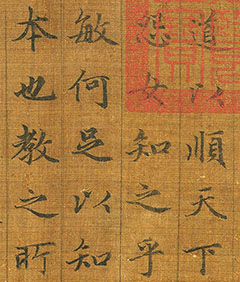 道以順天下
怨女知之乎
敏何足以知
本也教之所